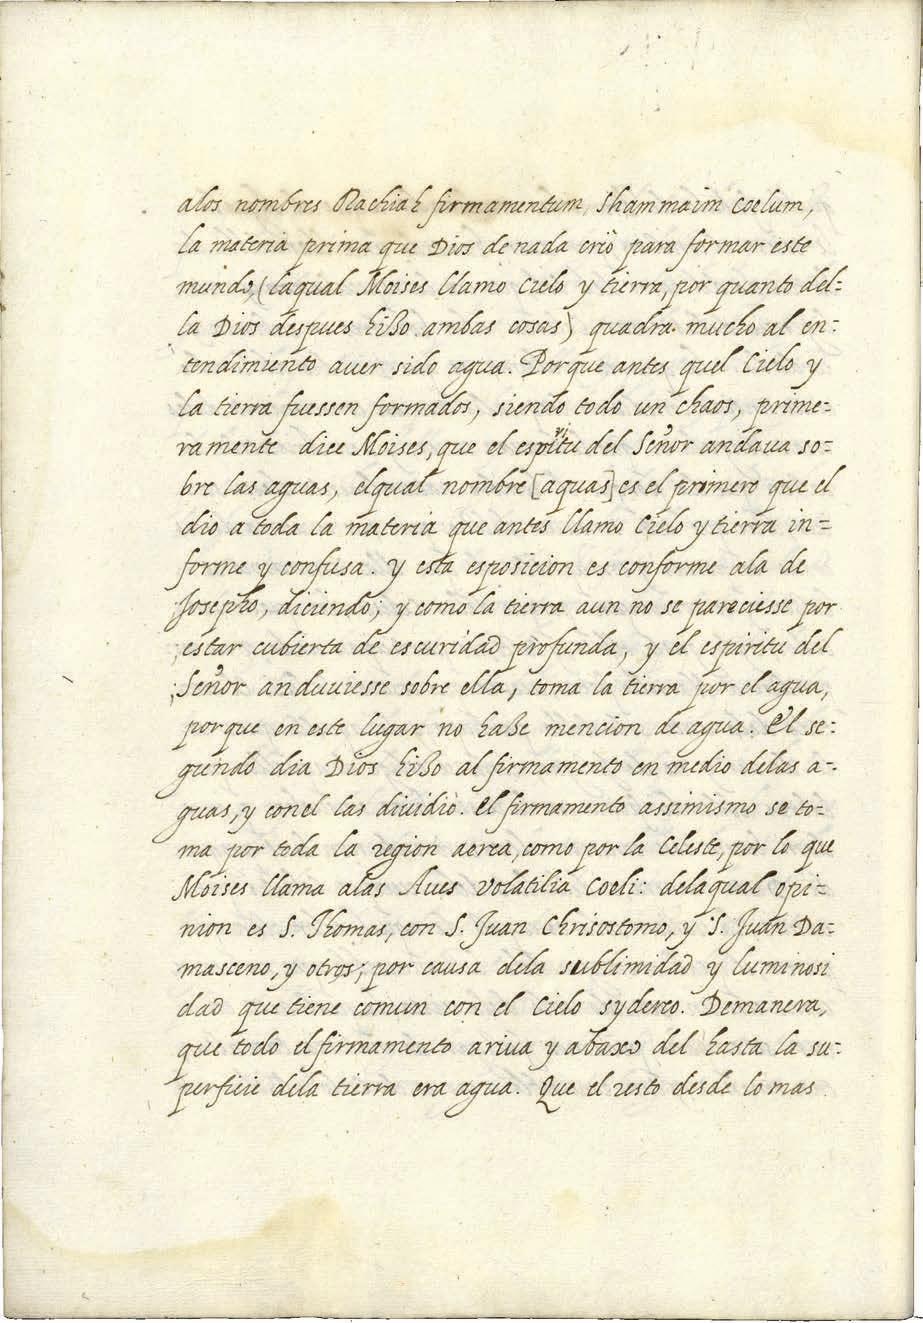 alos nombres Rachiah firmamentum, Shammaim Coelum,
la materia prima que Dios de nada criò para formar este
mundo, (laqual Moises llamo Cielo y tierra, por quanto del=
la Dios despues hizo ambas cosas) quadra mucho al en=
tendimiento auer sido agua. Porque antes quel Cielo y
la tierra fuessen formados, siendo todo un chaos, prime=
ramente dice Moises, que el espiritu del Señor andaua so=
bre las aguas, elqual nombre [aquas] es el primero que el
dio a toda la materia que antes llamo Cielo y tierra in=
forme y confusa. y esta esposicion es conforme ala de
Josepho, diciendo; y como la tierra aun no se pareciesse por
estar cubierta de escuridad profunda, y el espiritu del
Señor anduuiesse sobre ella, toma la tierra por el agua,
porque en este lugar no haze mencion de agua. El se=
gundo dia Dios hizo al firmamento en medio delas a=
guas, y conel las diuidiò. el firmamento assimismo se to=
ma por toda la region aerea, como por la Celeste, por lo que
Moises llama alas Aues volatilia Coeli: delaqual opi=
nion es S. Thomas, con S. Juan Chrisostomo, y S. Juan Da=
masceno, y otros; por causa dela sublimidad y luminosi
dad que tiene comun con el Cielo sydereo. Demanera,
que todo el firmamento ariua y abaxo del hasta la su=
perficie dela tierra era agua. Que el resto desde lo mas